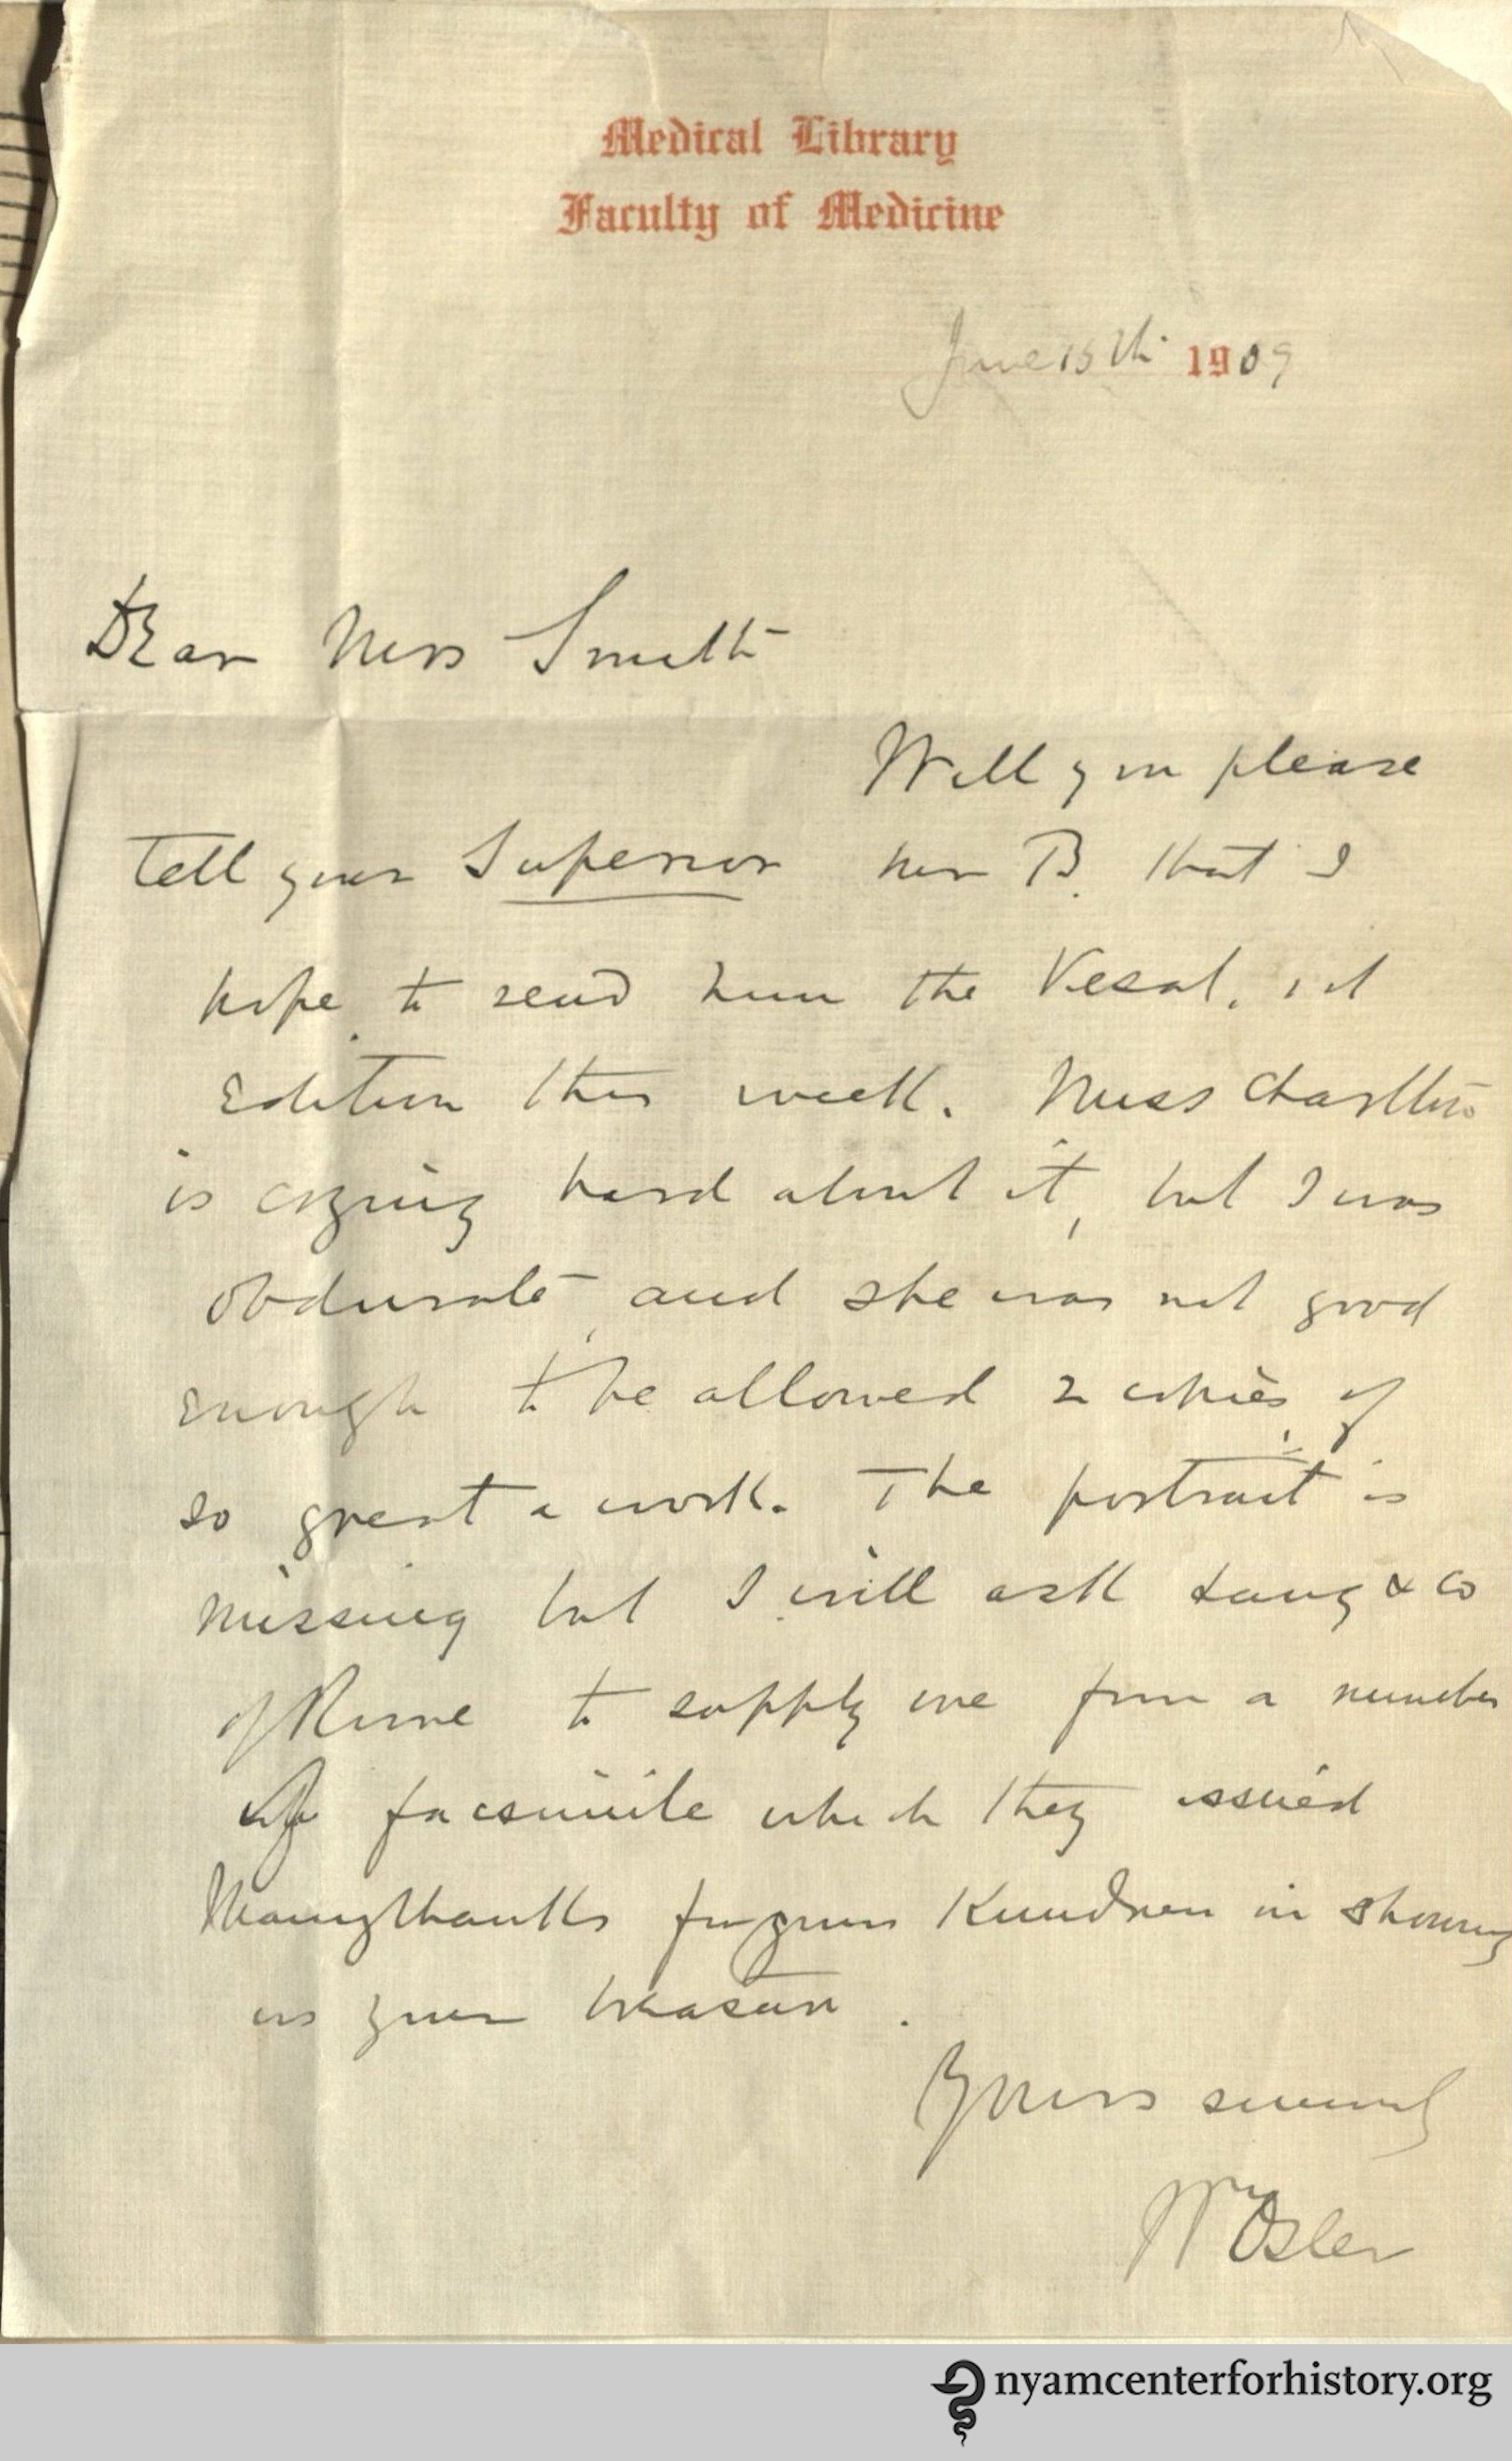 Medical Library
Faculty of Medicine
June 15th 1909
Dear Miss Smith
Will you please
tell your Superior Mr B. that I
hope to send him the Vesal. 1st
Edition this week. Miss Charlton
is crying hard about it, but I was
obdurate and she was not good
enough to be allowed 2 copies of
so great a work. The portrait is
missing but I will ask Lang & Co
of Rome to supply me from a number
of facsimile which they issued
Many thanks for your kindness in showing
us your treasures.
Yours sincerely
Wm Osler
nyamcenterforhistory.org